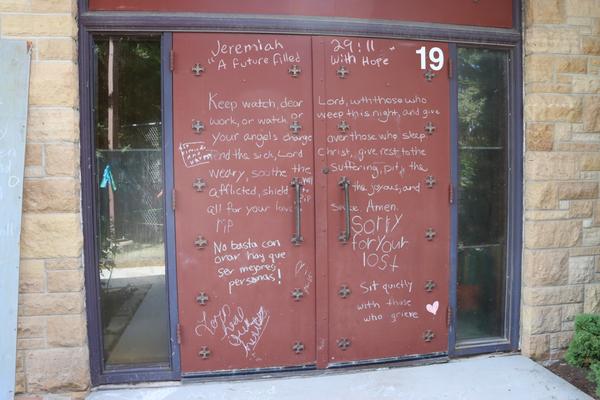 Jeremiah 29:11 -
"A future filled with Hope
19
Keep watch, dear Lord, with those who
work, or watch or weep this night, and give
your angels charge over those who sleep
tend the sick, Lord Christ, give rest to the
weary, soothe the suffering, pity the
afflicted, shield the joyous, and
all for your love sake. Amen.
rip
RIP
No basta con
orar hay que
ser mejores
personas!
SORRY
for your
lost
Sit quietly
with those
who grieve
Love
Heal